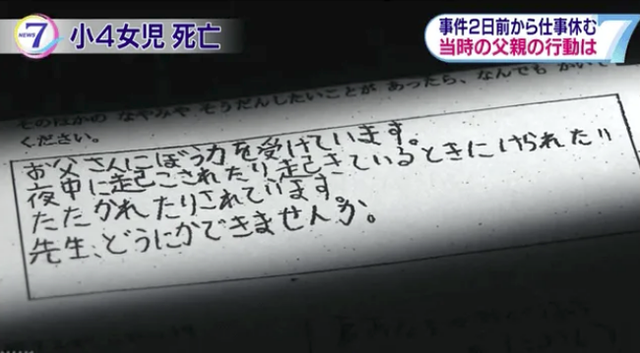 NEWS 7
小4女児 死亡
事件2日前から仕事休む
当時の父親の行動は
7
そのほかの なやみや そうだんしたいことが あったら、なんでも かいて
ください。
お父さんにぼう力を受けています。
夜中に起こされたり、起きているときにけられたり
たたかれたりされています。
先生、どうにかできませんか。